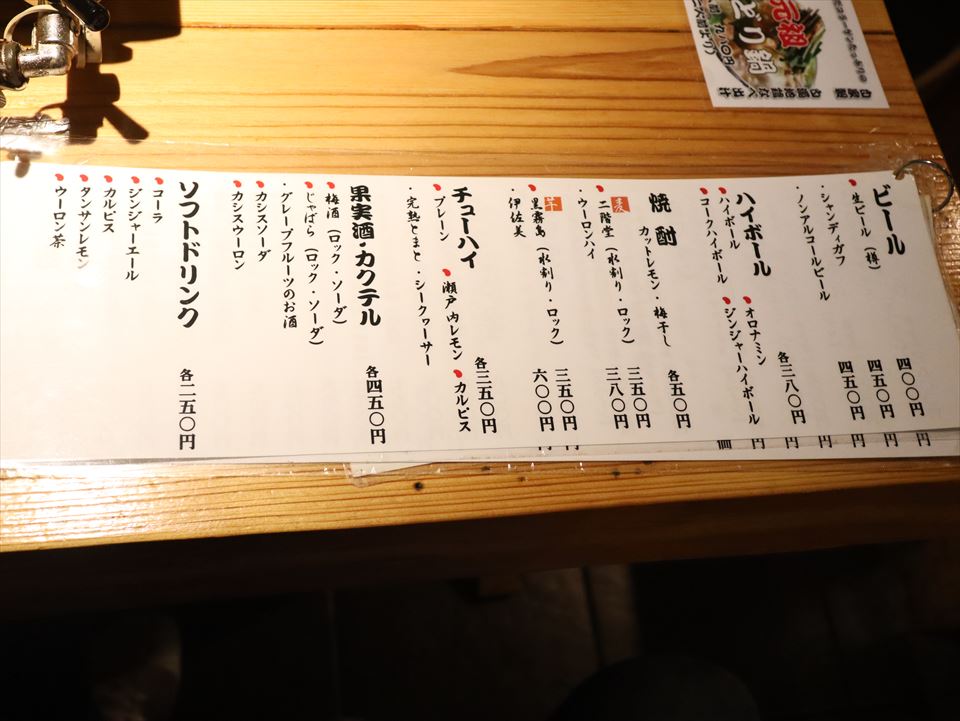 ビール
生ビール（樽） 四〇〇円
・シャンディガフ 四五〇円
・ノンアルコールビール 四五〇円
ハイボール 各三八〇円
ハイボール オロナミン
コークハイボール ジンジャーハイボール
焼酎 カットレモン・梅干し 各五〇円
麦 二階堂（水割り・ロック） 三五〇円
・ウーロンハイ 三八〇円
芋 黒霧島（水割り・ロック） 三五〇円
・伊佐美 六〇〇円
チューハイ 各三五〇円
プレーン 瀬戸内レモン カルピス
・完熟とまと・シークヮーサー
果実酒・カクテル 各四五〇円
梅酒（ロック・ソーダ）
じゃばら（ロック・ソーダ）
・グレープフルーツのお酒
カシスソーダ
カシスウーロン
ソフトドリンク 各二五〇円
コーラ
ジンジャーエール
カルピス
タンサンレモン
ウーロン茶
元祖
どり鍋